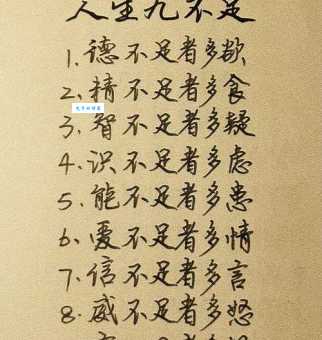 人生九不足
1.德不足者多欲
2.精不足者多食
3.智不足者多疑
4.识不足者多虑
5.能不足者多患
6.爱不足者多情
7.信不足者多言
8.威不足者多怒